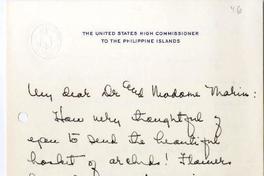 46
THE UNITED STATES HIGH COMMISSIONER
TO THE PHILIPPINE ISLANDS
My dear Dr and Madame
How very thoughtful of
you to send the beautiful
basket of orchids! Flowers